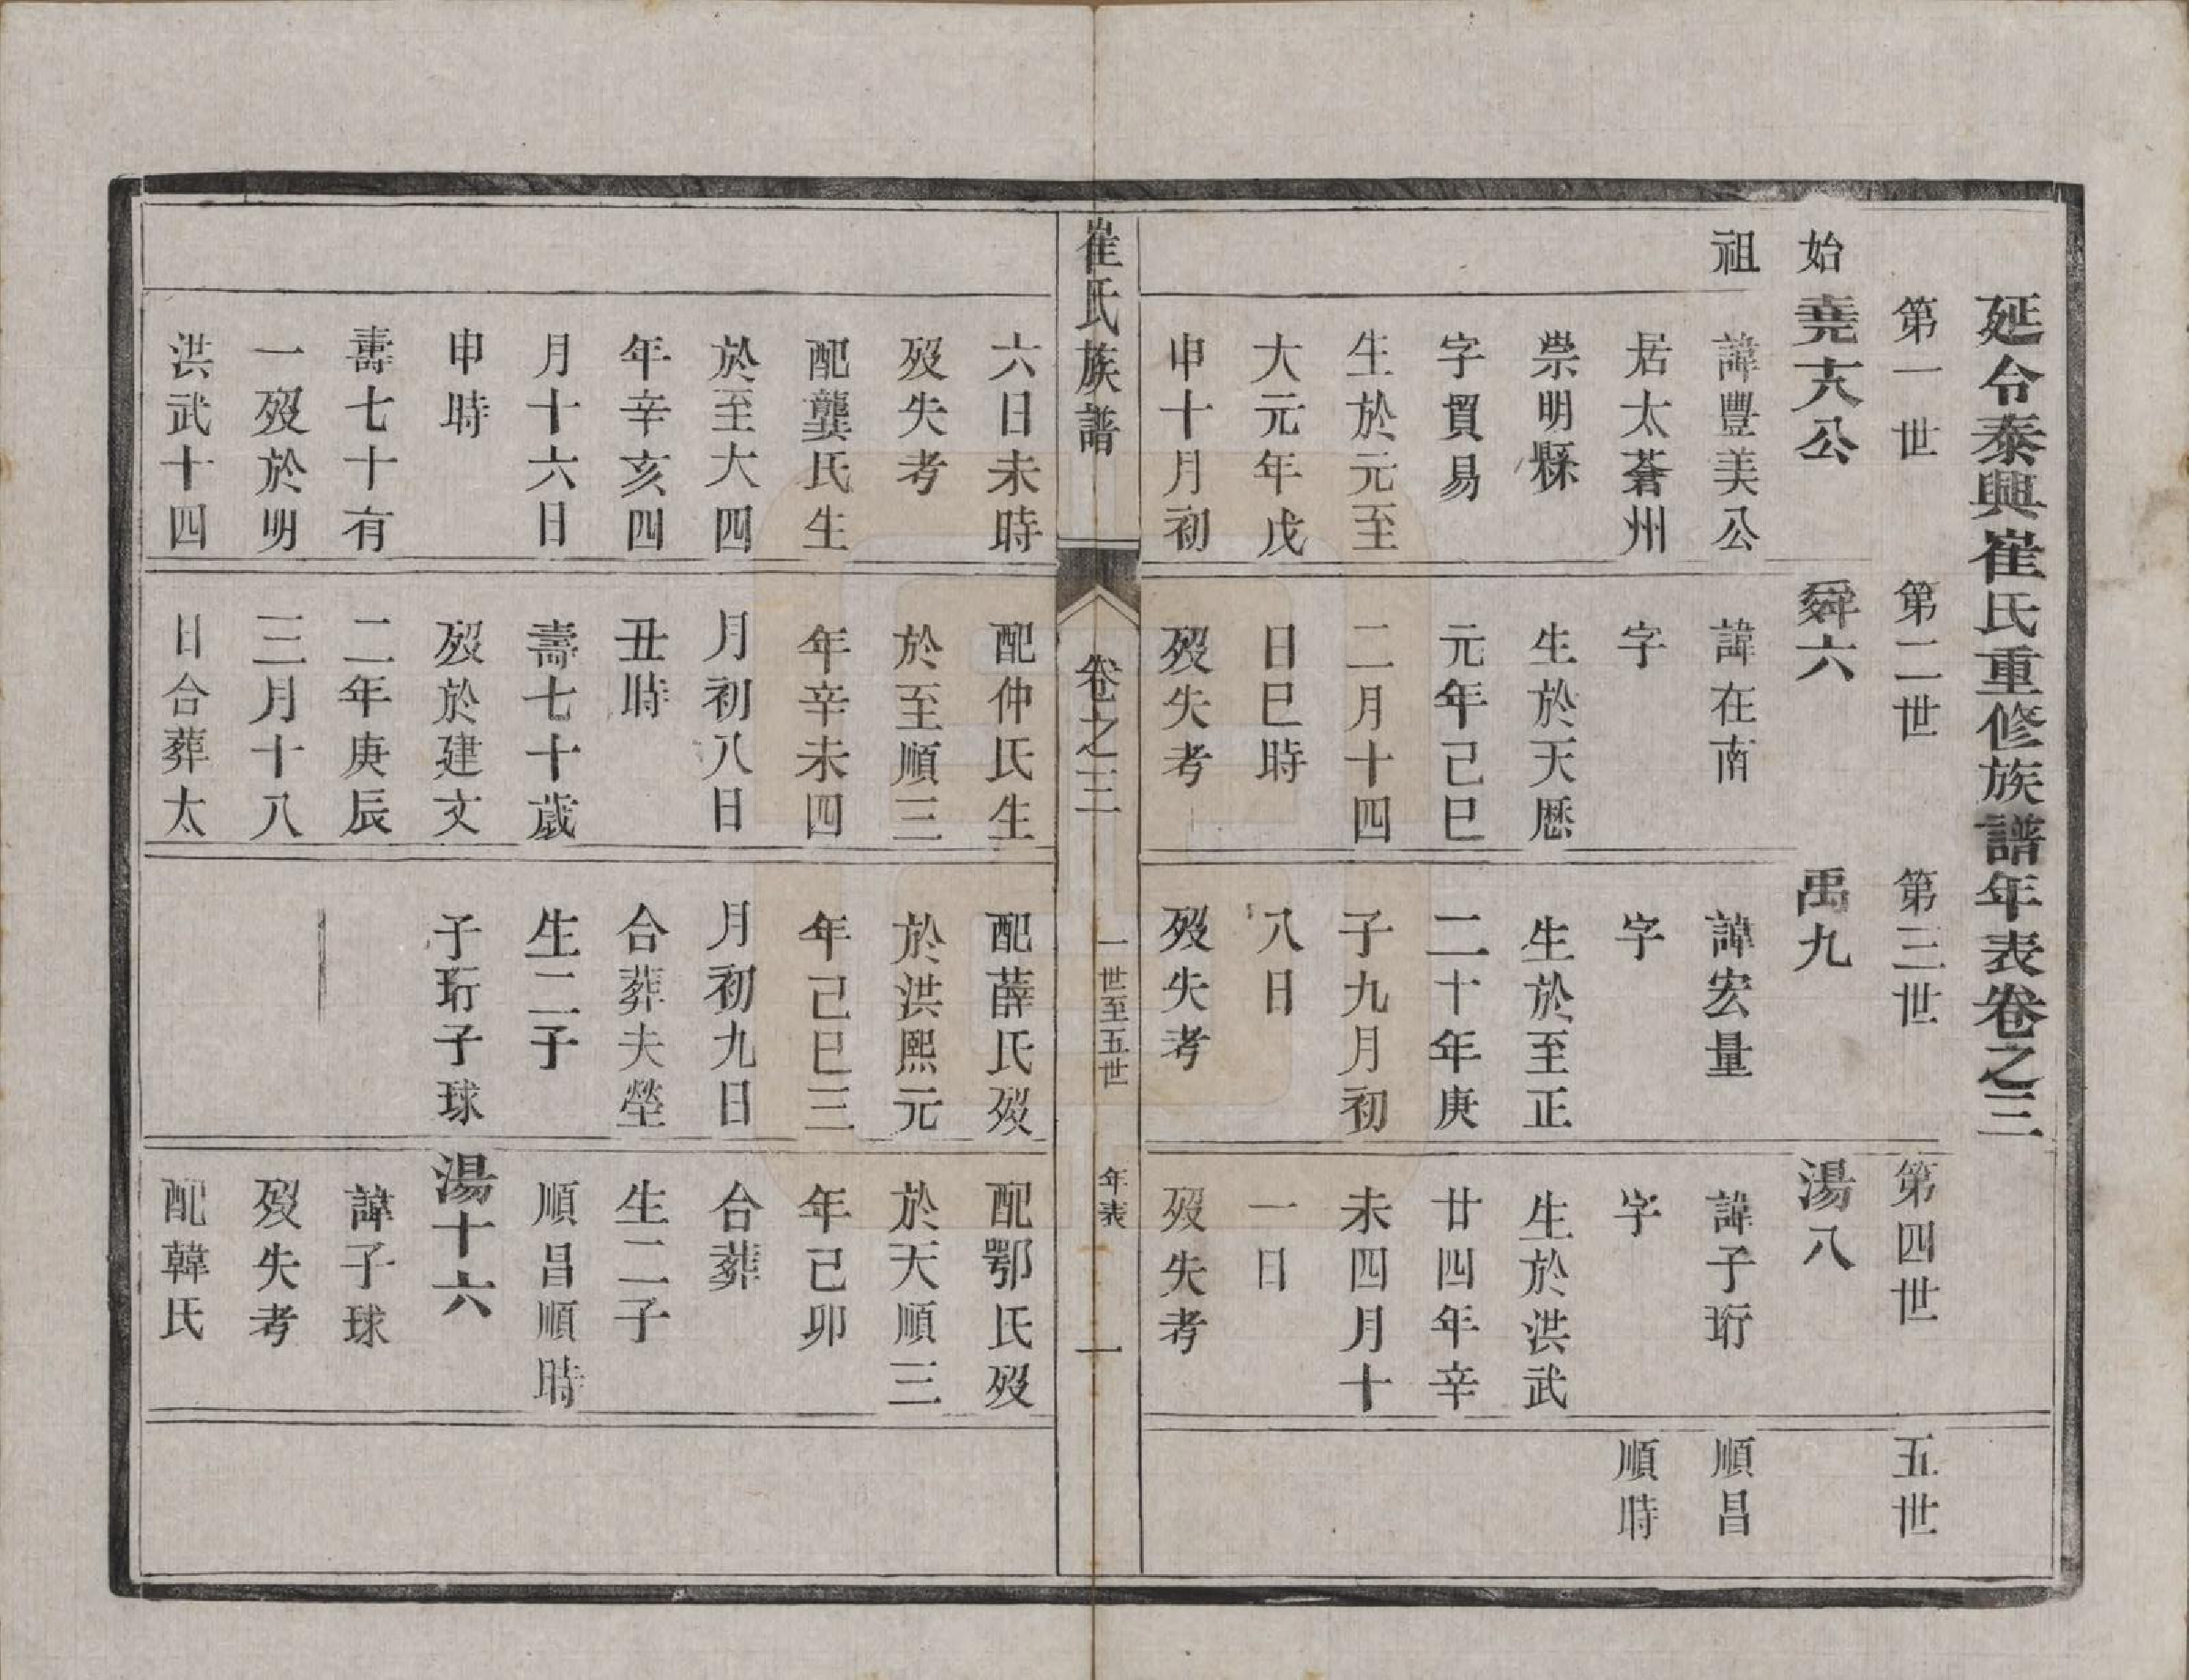 延令泰興崔氏重修族譜年表卷之三
第一世
第二世
第三世
第四世
五世
始
祖
堯六公
諱豐美公
居太蒼州
崇明縣
字貿易
生於元至
大元年戊
申十月初
六日未時
歿失考
配龔氏生
於至大四
年辛亥四
月十六日
申時
壽七十有
一歿於明
洪武十四
舜六
諱在南
字
生於天厯
元年己巳
二月十四
日巳時
歿失考
配仲氏生
於至順三
年辛未四
月初八日
丑時
壽七十歲
歿於建文
二年庚辰
三月十八
日合葬太
禹九
諱宏量
字
生於至正
二十年庚
子九月初
八日
歿失考
配薛氏歿
於洪熙元
年己巳三
月初九日
合葬夫塋
生二子
子珩子球
湯八
諱子珩
字
生於洪武
廿四年辛
未四月十
一日
歿失考
配鄂氏歿
於天順三
年己卯
合葬
生二子
順昌順時
湯十六
諱子球
歿失考
配韓氏
順昌
順時
崔氏族譜
卷之三
一世至五世
年表
一